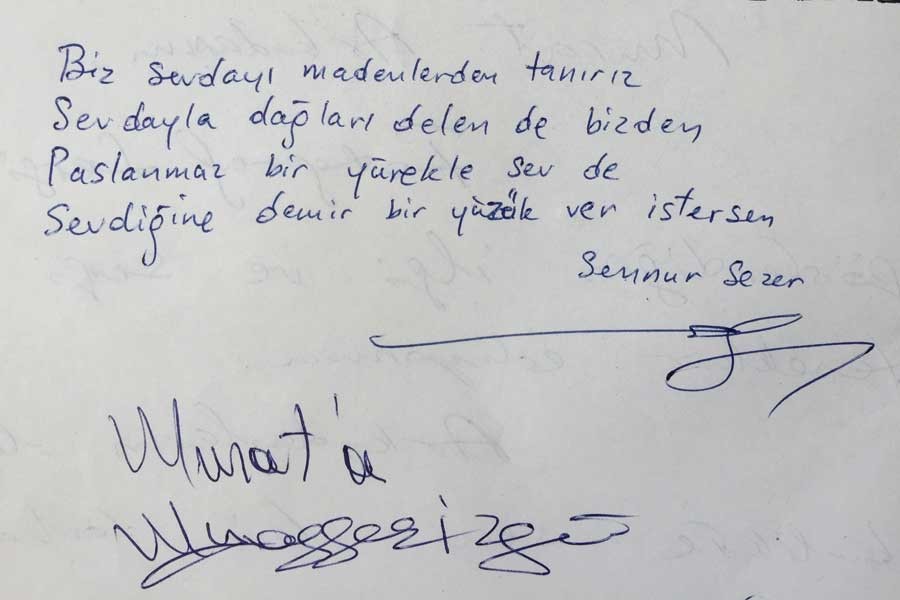 Biz sevdayı madenlerden tanırız
Sevdayla dağları delen de bizden
Paslanmaz bir yürekle sev de
Sevdiğine demir bir yüzük ver istersen
Sennur Sezer
Murat'a
Muzaffer İzgü